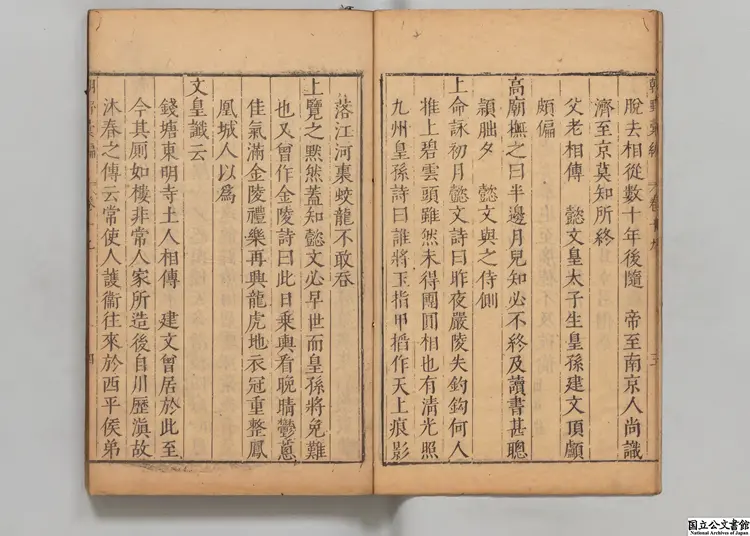 脫去相從數十年後隨　帝至南京人尚識
濟至京莫知所終
父老相傳　懿文皇太子生皇孫建文頂顱
頗偏
高廟撫之曰半邊月兒知必不終及讀書甚聰
穎一夕　懿文與之侍側
上命詠初月懿文詩曰昨夜嚴陵失釣鈎何人
推上碧雲頭雖然未得團圓相也有清光照
九州皇孫詩曰誰將玉指甲搯作天上痕影
落江河裏蛟龍不敢吞
上覽之默然蓋知懿文必早世而皇孫將免難
也又曾作金陵詩曰此日乘輿看晚晴鬱蔥
佳氣滿金陵禮樂再興龍虎地衣冠重整鳳
凰城人以為
文皇讖云
錢塘東明寺土人相傳　建文曾居於此至
今其厠如樓非常人家所造後自川歷滇故
沐春之傳云常使人護衞往來於西平侯弟
国立公文書館
National Archives of Japan